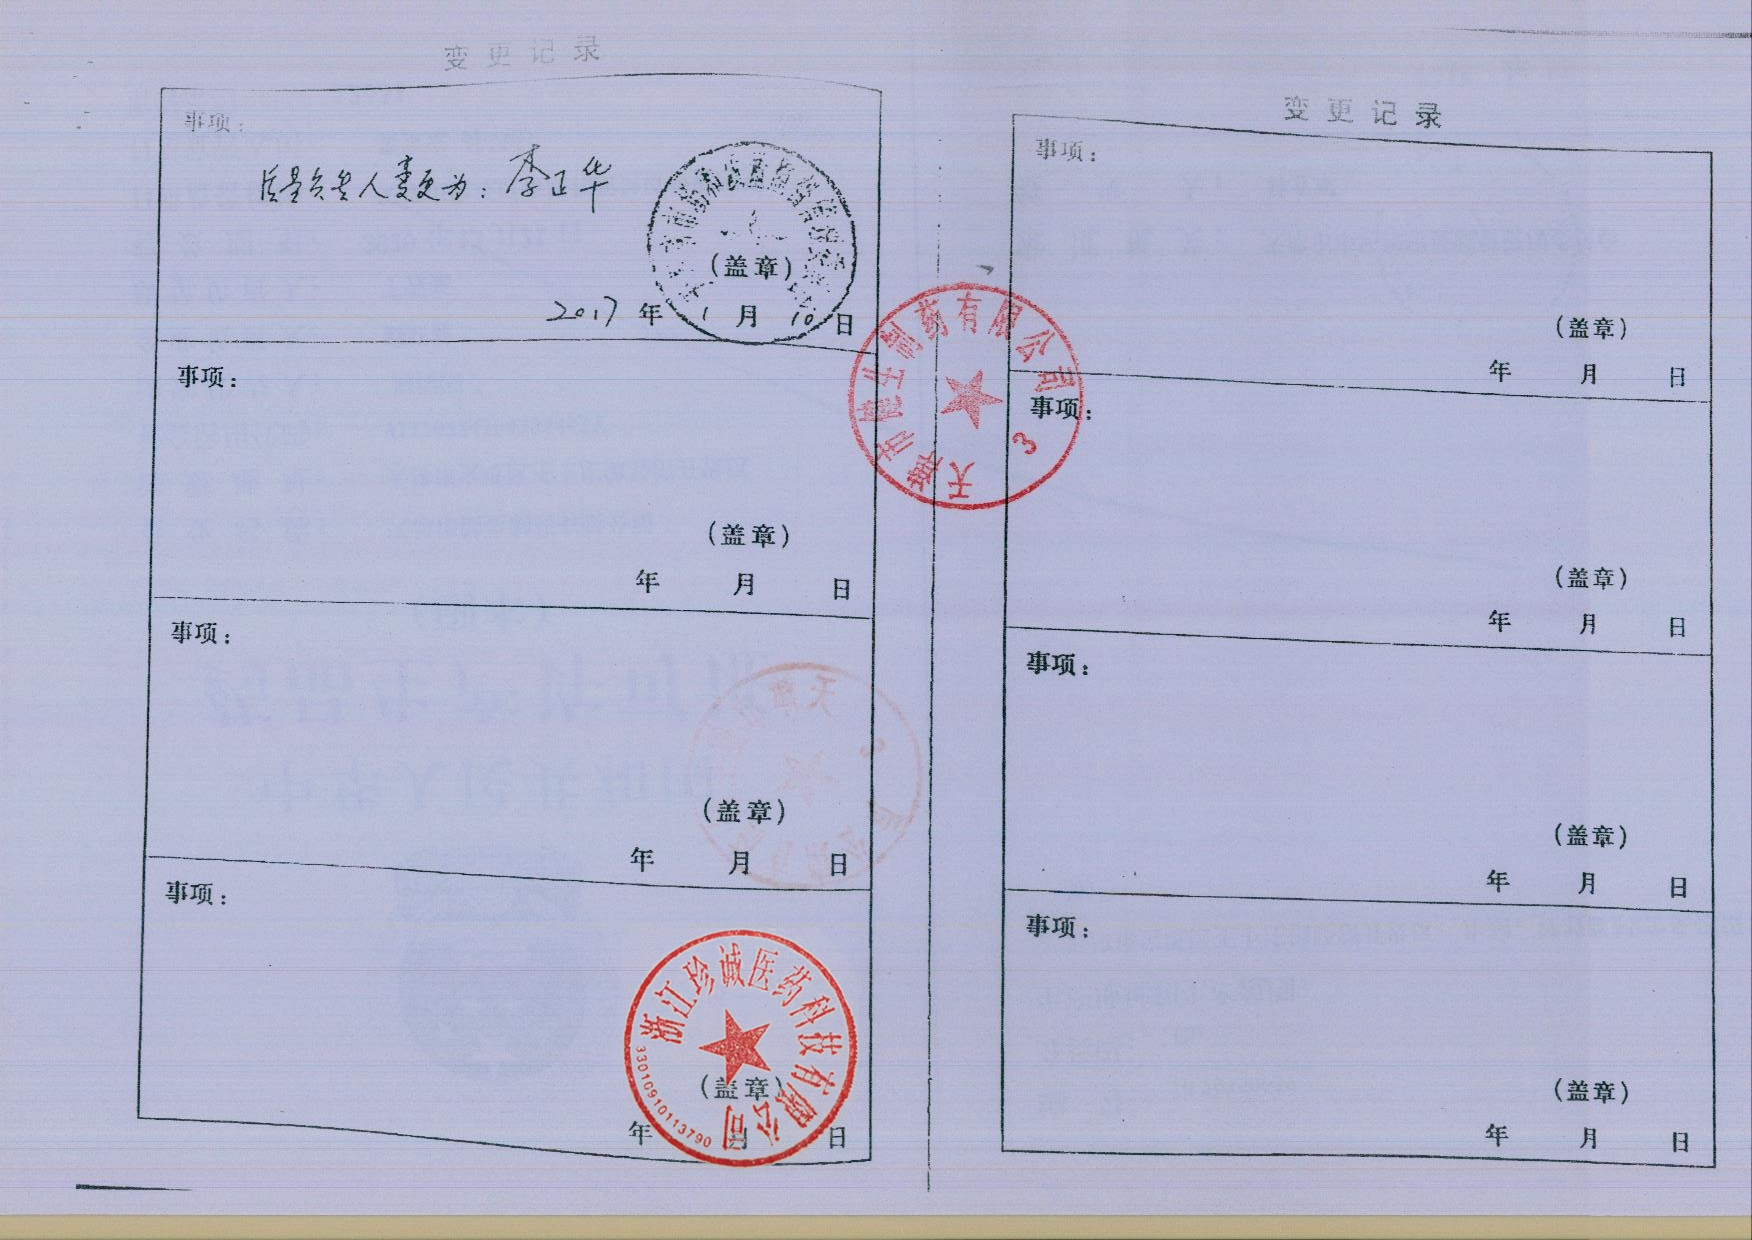 变更记录
事项：
质量负责人变更为：李正华
（盖章）
2017 年 1 月 10 日
事项：
（盖章）
年 月 日
事项：
（盖章）
年 月 日
事项：
浙江珍诚医药科技有限公司
33010910113790
（盖章）
年 月 日
天津市 生制药有限公司
3
变更记录
事项：
（盖章）
年 月 日
事项：
（盖章）
年 月 日
事项：
（盖章）
年 月 日
事项：
（盖章）
年 月 日